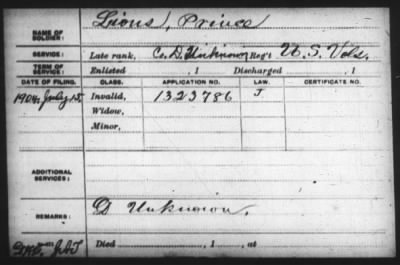 NAME OF SOLDIER: Lions, Prince
SERVICE: Late rank, Co. D. Unknown Reg't U.S. Vols.
TERM OF SERVICE: Enlisted , 1 Discharged , 1
DATE OF FILING. CLASS. APPLICATION NO. LAW. CERTIFICATE NO.
1904, July 15, Invalid, 1323786 J
Widow,
Minor,
ADDITIONAL SERVICES:
REMARKS: Unknown.
Died , 1 , at